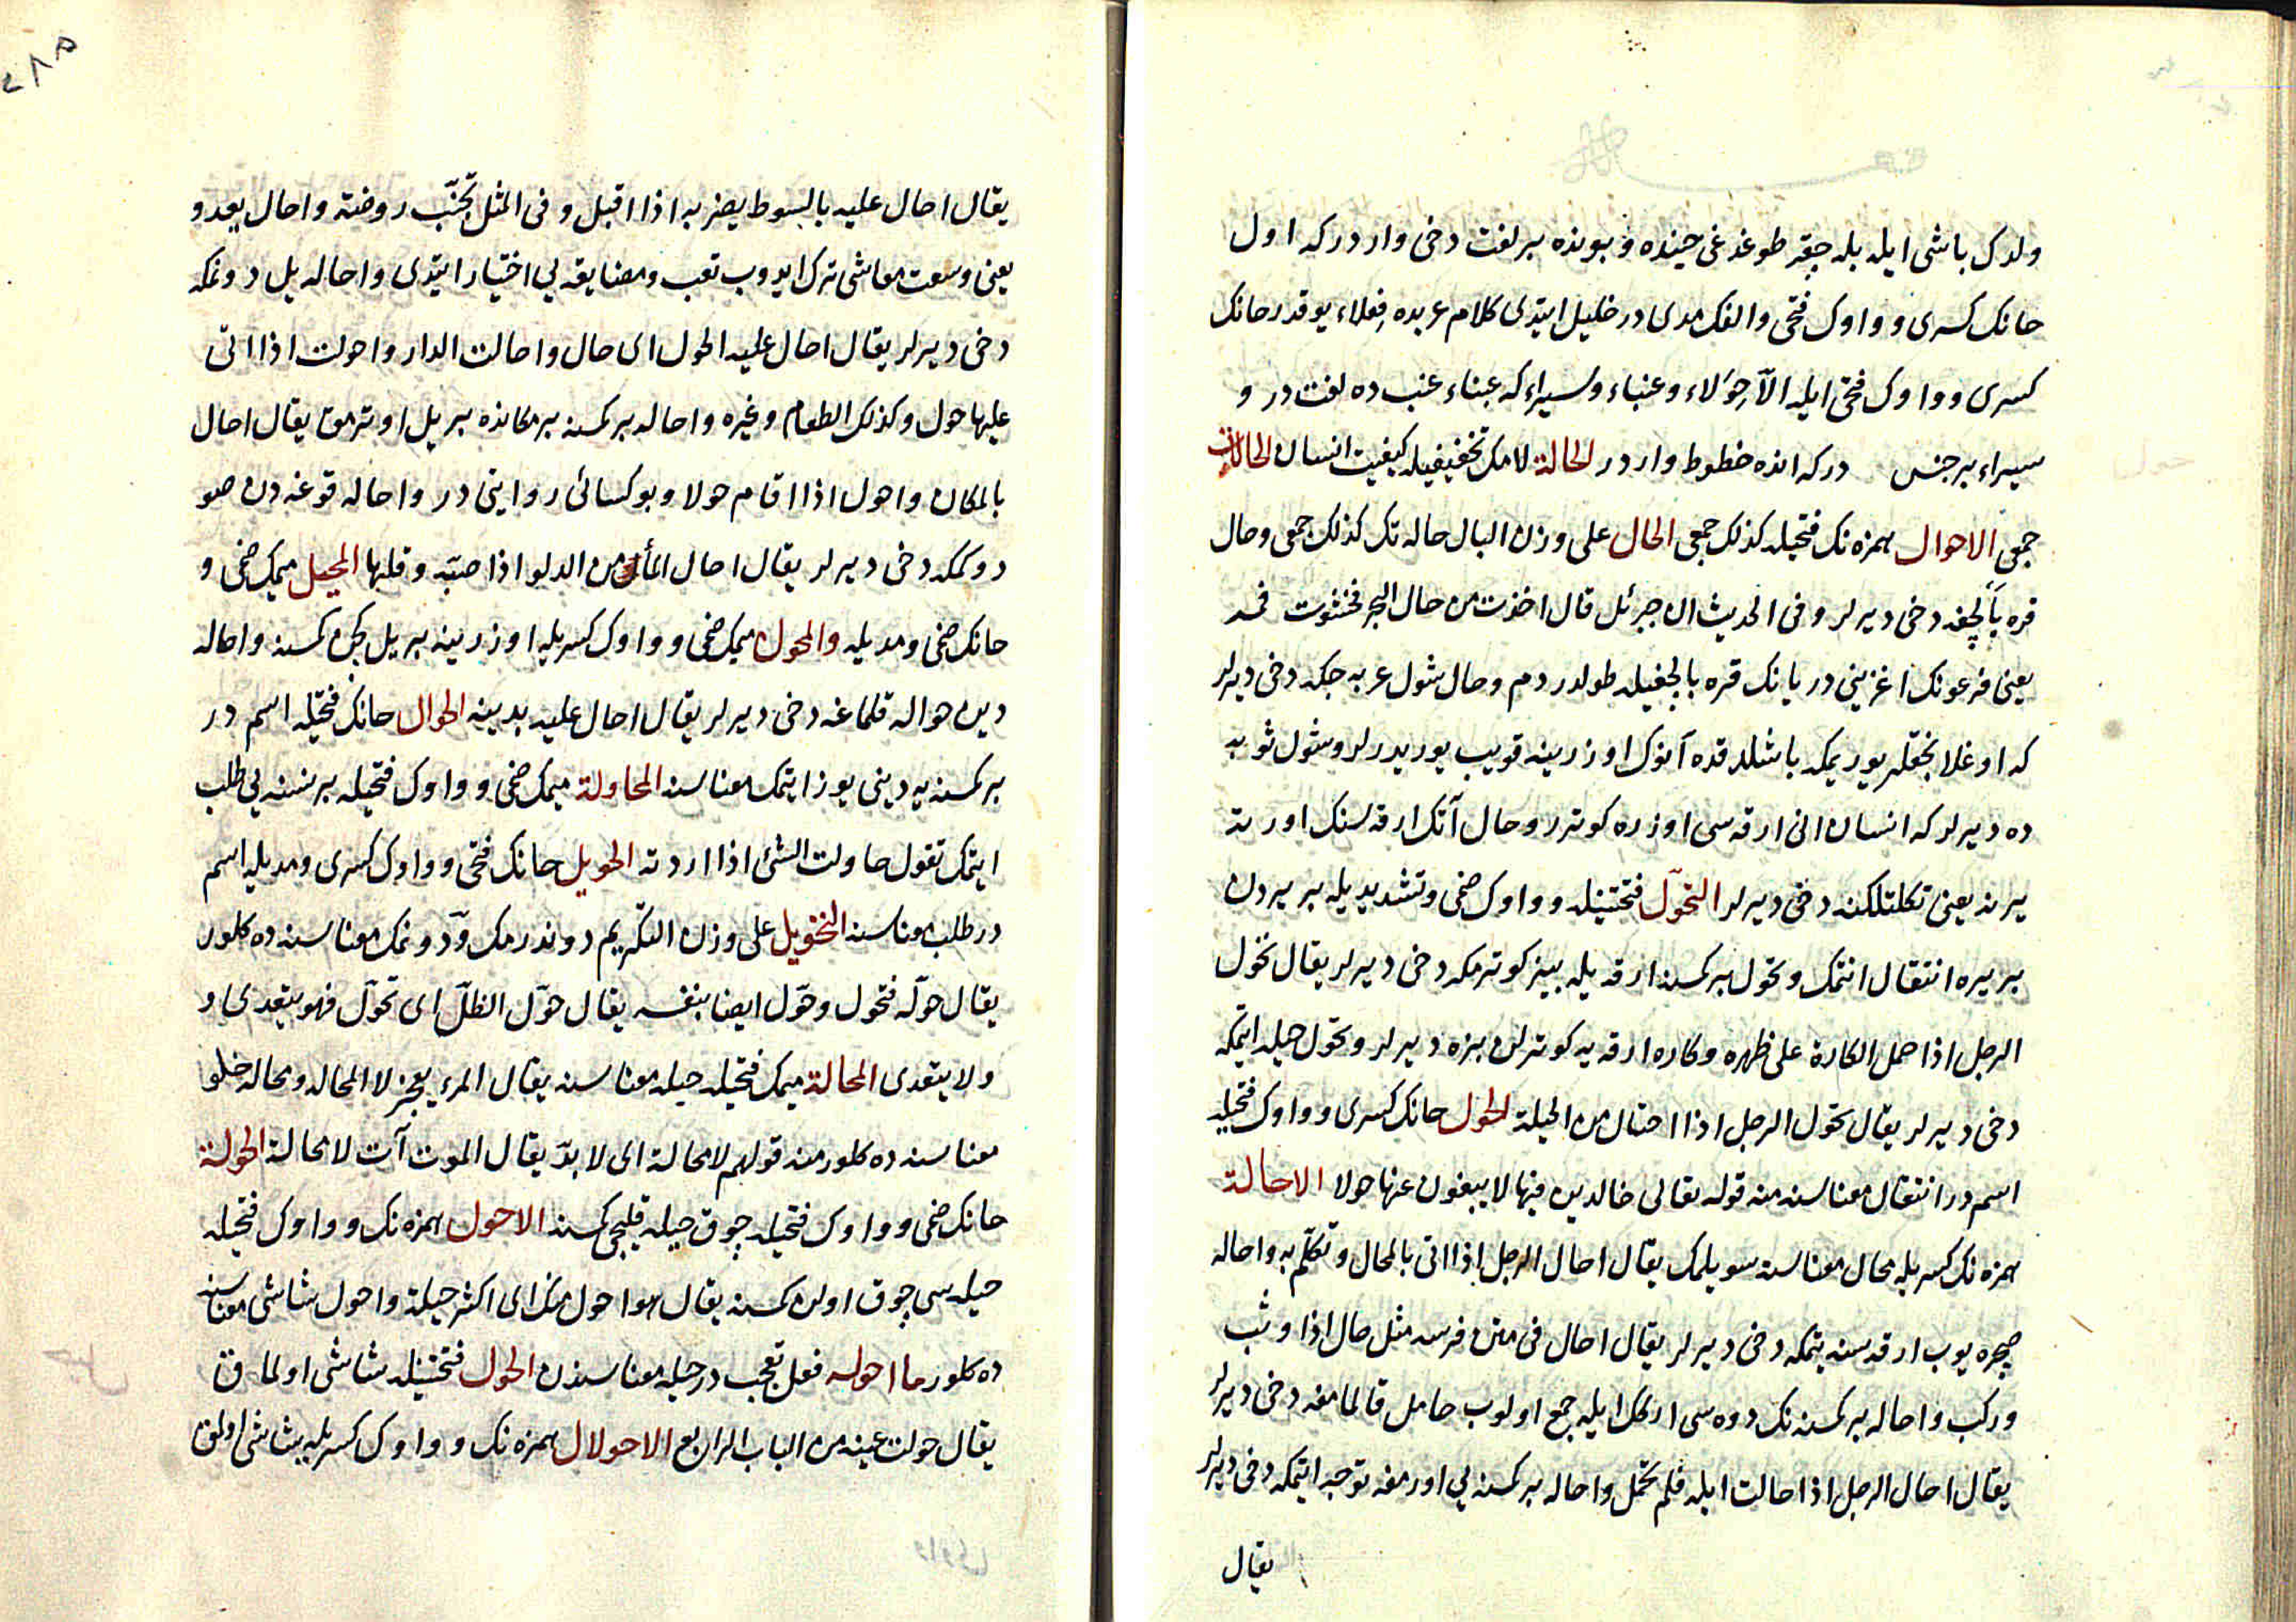 ولدك باشى ايله بله چقر طوغدغى حينده و بونده بر لغت دخى واردر كه اول
حانك كسرى و واوك فتحى والفك مدى در خليل ايتدى كلام عربده فعلاء يوقدر حانك
كسرى و واوك فتحى ايله الّا حِوَلاء وعنباء وسيراء كه عنباء عنب ده لغت در و
سيراء بر جنس دركه انده خطوط واردر الحالة لامك تخفيفيله كيفيت انسان الحالات
جمعى الاحوال همزه نك فتحيله كذلك جمعى الحال على وزن البال حاله تك كذلك جمعى وحال
قره بالچغه دخى ديرلر وفى الحديث ان جبرئل قال اخذت من حال البحر فحشوت فمه
يعنى فرعونك اغزينى دريانك قره بالچغيله طولدردم وحال شول عربه جكه دخى ديرلر
كه اوغلانجقلر يوريمكه باشلدقده آنوك اوزرينه قويب يوريدرلر وشول ثوبه
ده ديرلر كه انسان انى ارقه سى اوزره كوترر وحال آتك ارقه سنك اورته
يرينه يعنى تكلتلكنه دخى ديرلر التحوّل فتحتينله و واوك ضمى وتشديديله بر يردن
بر يره انتقال اتمك وتحول بر كمسنه ارقه يله بيز كوترمكه دخى ديرلر يقال تحول
الرجل اذا حمل الكارة على ظهره وكاره ارقه يه كوترلن بزه ديرلر وتحول حيله ايتمكه
دخى ديرلر يقال تحول الرجل اذا احتال من الحيلة الحول حانك كسرى و واوك فتحيله
اسم در انتقال معناسنه منه قوله تعالى خالدين فيها لا يبغون عنها حولا الاحالة
همزه نك كسريله محال معناسنه سويلمك يقال احال الرجل اذا اتى بالمحال وتكلّم به واحاله
صچره يوب ارقه سنه بتمكه دخى ديرلر يقال احال فى متن فرسه مثل حال اذا وثب
وركب واحاله بر كمسنه نك دوه سى اركك ايله جمع اولوب حامل قالمامغه دخى ديرلر
يقال احال الرجل اذا حالت ابله فلم تحمل واحاله بر كمسنه يى اورمغه توجه ايتمكه دخى ديرلر
يقال
٢٨٥
يقال احال عليه بالسوط يضربه اذا اقبل وفى المثل تجنّب روضة واحال يعدو
يعنى وسعت معاشى ترك ايدوب تعب ومضايقه يى اختيار ايتدى واحاله يل دونمكه
دخى ديرلر يقال احال عليه الحول اى حال واحالت الدار واحولت اذا اتى
عليها حول وكذلك الطعام وغيره واحاله بر كمسنه بر مكانده بر يل اوترمق يقال احال
بالمكان واحول اذا اقام حولا وبو كسائى روايتى در واحاله قوغه دن صو
دوكمكه دخى ديرلر يقال احال الماء من الدلو اذا صبّه وقلبها المحيل ميمك ضمى و
حانك ضمى ومديله والمحول ميمك ضمى و واوك كسريله اوزرينه بر يل كچن كمسنه واحاله
دين حواله قلماغه دخى ديرلر يقال احال عليه بدينه الحوال حانك فتحيله اسم در
بر كمسنه يه دينى يوز ايتمك معناسنه المحاولة ميمك ضمى و واوك فتحيله بر نسنه يى طلب
ايتمك تقول حاولت الشئ اذا اردته الحويل حانك فتحى و واوك كسرى ومديله اسم
در طلب معناسنه التحويل على وزن التكريم دوندرمك و دونمك معناسنه ده كلور
يقال حوله فتحول وحوّل ايضا بنفسه يقال حوّل الظلّ اى تحوّل فهو يتعدى و
ولا يتعدى المحالة ميمك فتحيله حيله معناسنه يقال المرء يعجز لا المحاله ومحاله خلو
معناسنه ده كلور منه قولهم لا محالة اى لا بدّ يقال الموت آت لا محالة الحولة
حانك ضمى و واوك فتحيله چوق حيله قليجى كمسنه الاحول همزه نك و واوك فتحيله
حيله سى چوق اولن كمسنه يقال هو احول منك اى اكثر حيلة واحول شاشى معناسنه
ده كلور ما احوله فعل تعجب در حيله معناسندن الحول فتحتينله شاشى اولماق
يقال حولت عينه من الباب الرابع الاحولال همزه نك و واوك كسريله شاشى اولمق